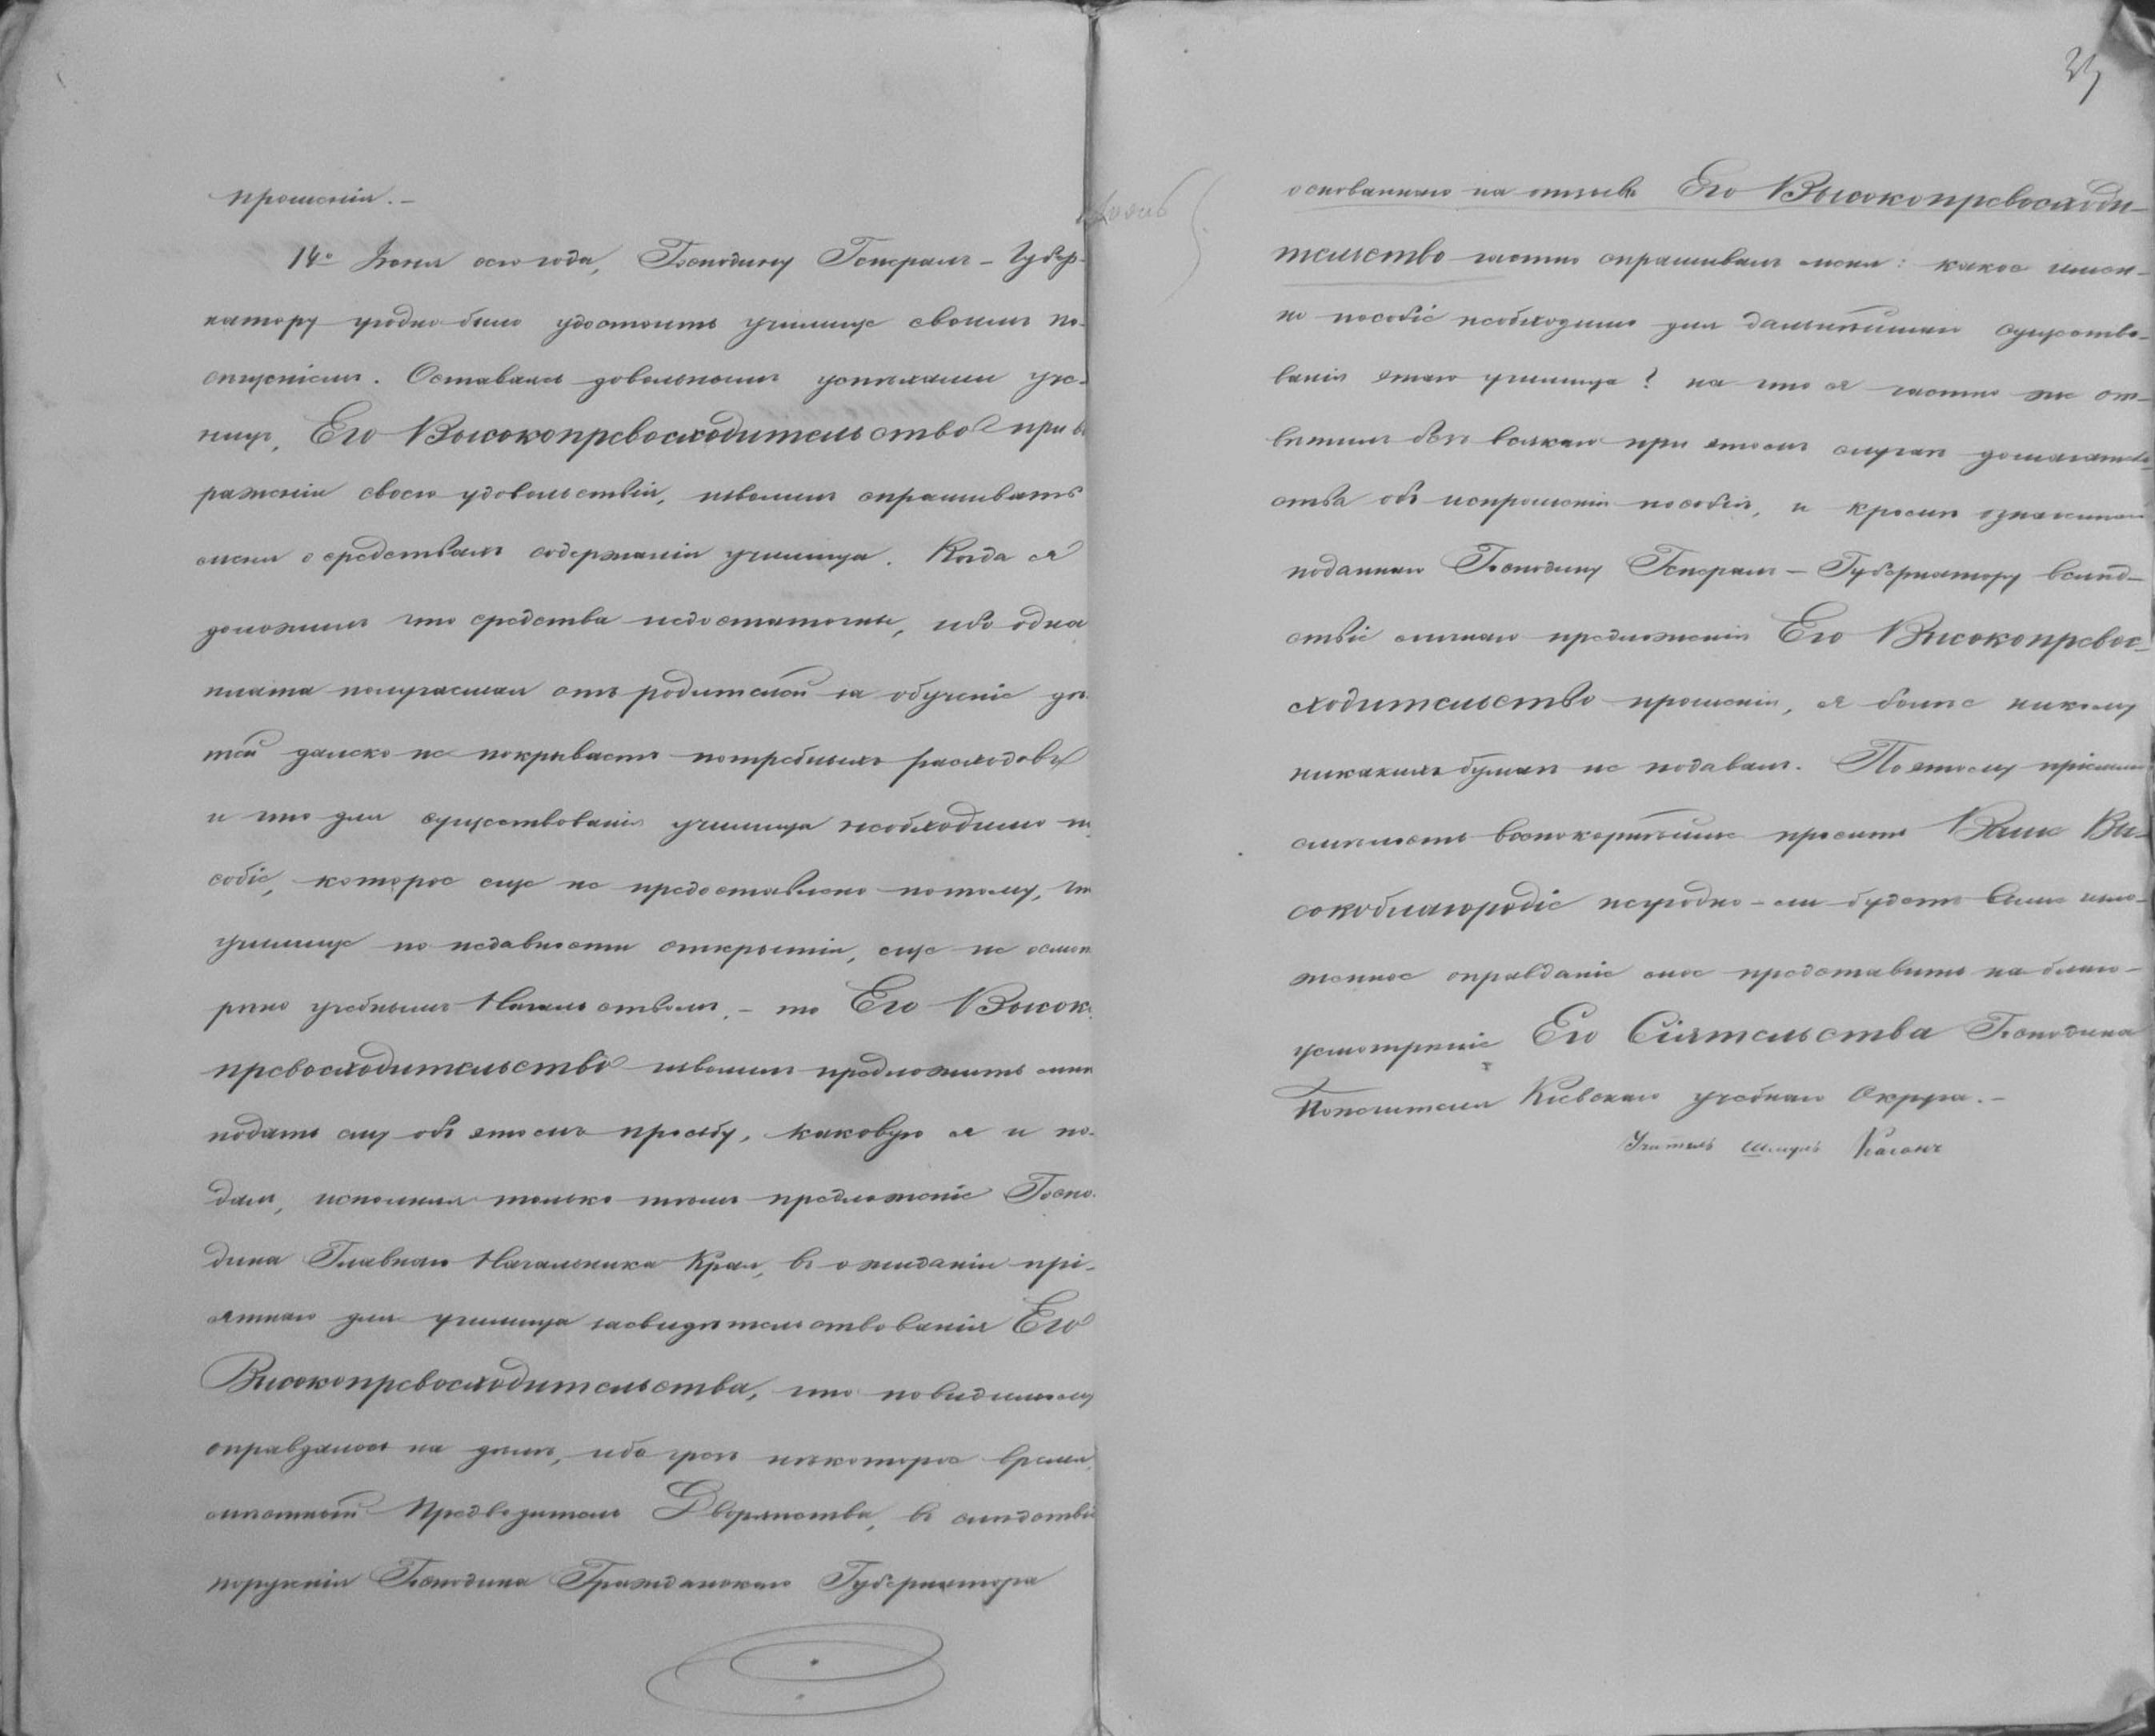 прошенія.-
14º Іюня сего года, Господину Генералъ-Губер-
натору угодно было удостоить училище своимъ по-
сѣщеніемъ. Оставаясь довольнымъ успѣхами уче-
ницъ, Его Высокопревосходительство при вы
раженіи своего удовольствія, изволилъ спрашивать
меня о средствахъ содержанія училища. Когда я
доложилъ что средства недостаточны, ибо одна
плата получаемая отъ родителей за обученіе дѣ-
тей далеко не покриваетъ потребныхъ расходовъ
и что для существованія училища необходимо по
собіе, которое еще не предоставлено потому, что
училище по недавности открытія, еще не осмот
рѣно учебнымъ Начальствомъ, - то Его Высоко
превосходительство изволилъ предложить мнѣ
подать ему объ этомъ прозьбу, каковую я и по-
далъ, исполняя только тѣмъ предложеніе Госпо-
дина Главнаго Начальника Края, въ ожиданіи прі-
ятнаго для училища засвидѣтельствованія Его
Високопревосходительства, что повидимому
оправдалось на дѣлѣ, ибо чрезъ нѣкоторое время,
мѣстный Предводитель Дворянства, въ слѣдствіе
порученія Господина Гражданскаго Губернатора
35
основаннаго на отзывѣ Его Высокопревосходи-
тельство частно спрашивалъ меня: какое имен-
но пособіе необходимо для дальнѣйшаго существо-
ванія этаго училища? на что я частно же от-
вѣтилъ безъ всякаго при этомъ случаѣ домогатель
ства объ испрошеніи пособія, и кромѣ означеннаго
поданнаго Господину Генералъ-Губернатору вслѣд-
ствіе личнаго предложенія Его Високопревос-
ходительство прошенія, я болѣе никому
никакихъ бумагъ не подавалъ. По этому пріемлю
смѣлость всепокорнѣйше просить Ваше Ви-
сокоблагородіе неугодно-ли будетъ Вамъ изло-
женное оправданіе мое представить на благо-
усмотрѣніе Его Сіятельства Господина
Попечителя Кіевскаго учебнаго Округа.-
Учитель Шмуль Каганъ